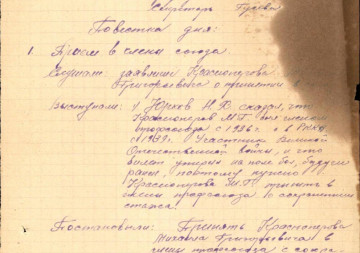 Секретарь Гусева
Повестка дня:
1. Прием в члены союза.
Слушали: заявление Красноперова
Григорьевича о принятии в
Выступили: Юрков Н.В. сказал, что
Красноперов М.Г. был членом
с 1926 г. а в РККА
с 1939г. Участник Великой
Отечественной войны, и что
билет утерян на поле боя, будучи
ранен, поэтому нужно
Красноперова М.Г. принять в
члены профсоюза с сохранением
стажа.
Постановили: Принять Красноперова
Михаила Григорьевича в
члены профсоюза с сохра